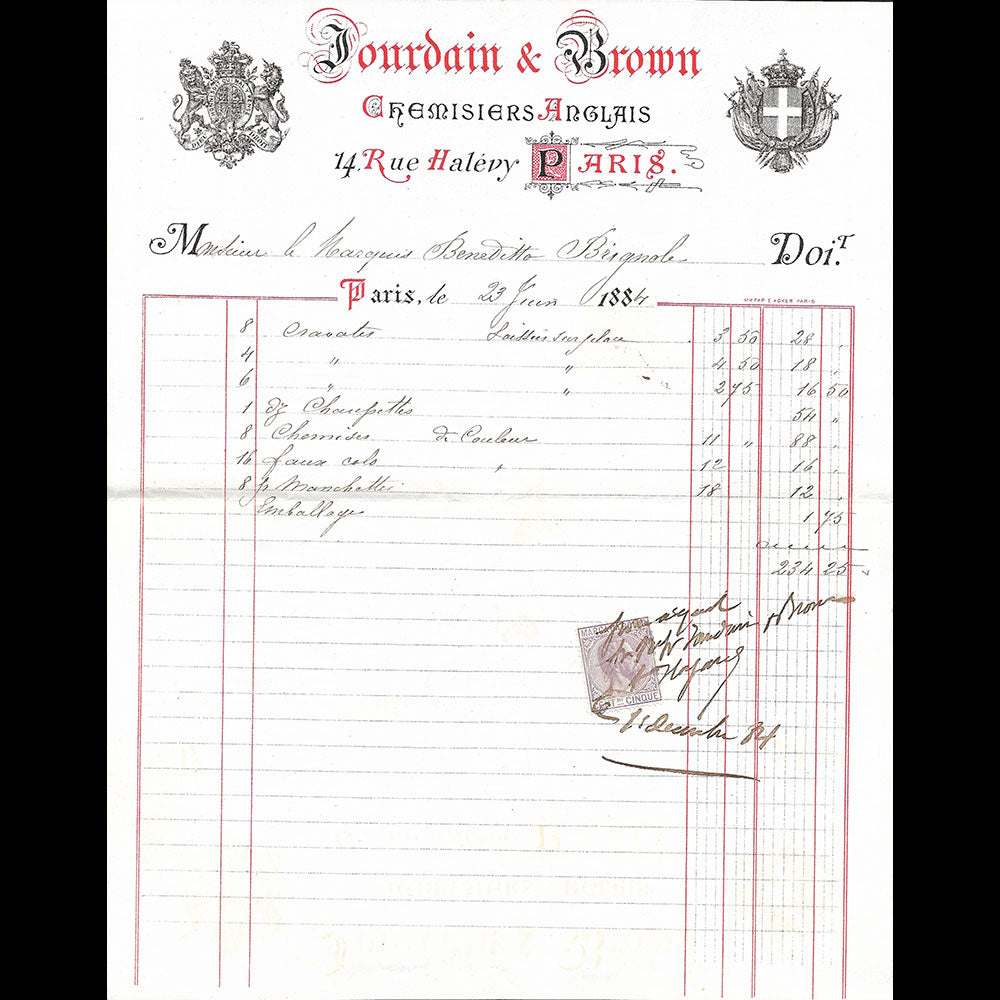 Jourdain & Brown
Chemisiers Anglais
14, Rue Halévy Paris.
Monsieur le Marquis Beneditto Brignole Doi.T
Paris, le 23 Juin 1884
8 Cravates Laissées sur place 3 50 28 "
4 " " 4 50 18 "
6 " " 2 75 16 50
1 dz Chaussettes 54 "
8 Chemises de Couleur 11 " 88 "
16 faux cols " 12 16 "
8 p Manchettes 18 12 "
Emballage 1 75
234 25
Pour acquit
Jourdain & Brown
MARCA DA BOLLO
CENT.MI CINQUE
decembre 84